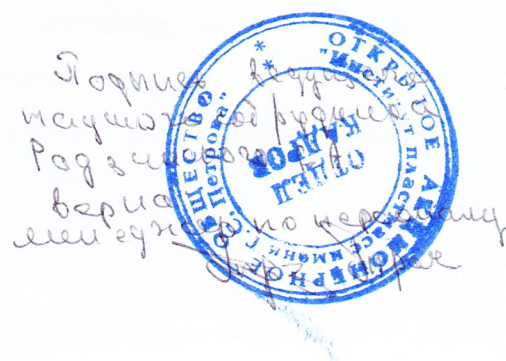 Подпись ведущего
научного сотрудника
верна
менеджер по персоналу
ОТКРЫТОЕ АКЦИОНЕРНОЕ ОБЩЕСТВО
"Институт пластмасс имени Г.С. Петрова"
ОТДЕЛ
КАДРОВ